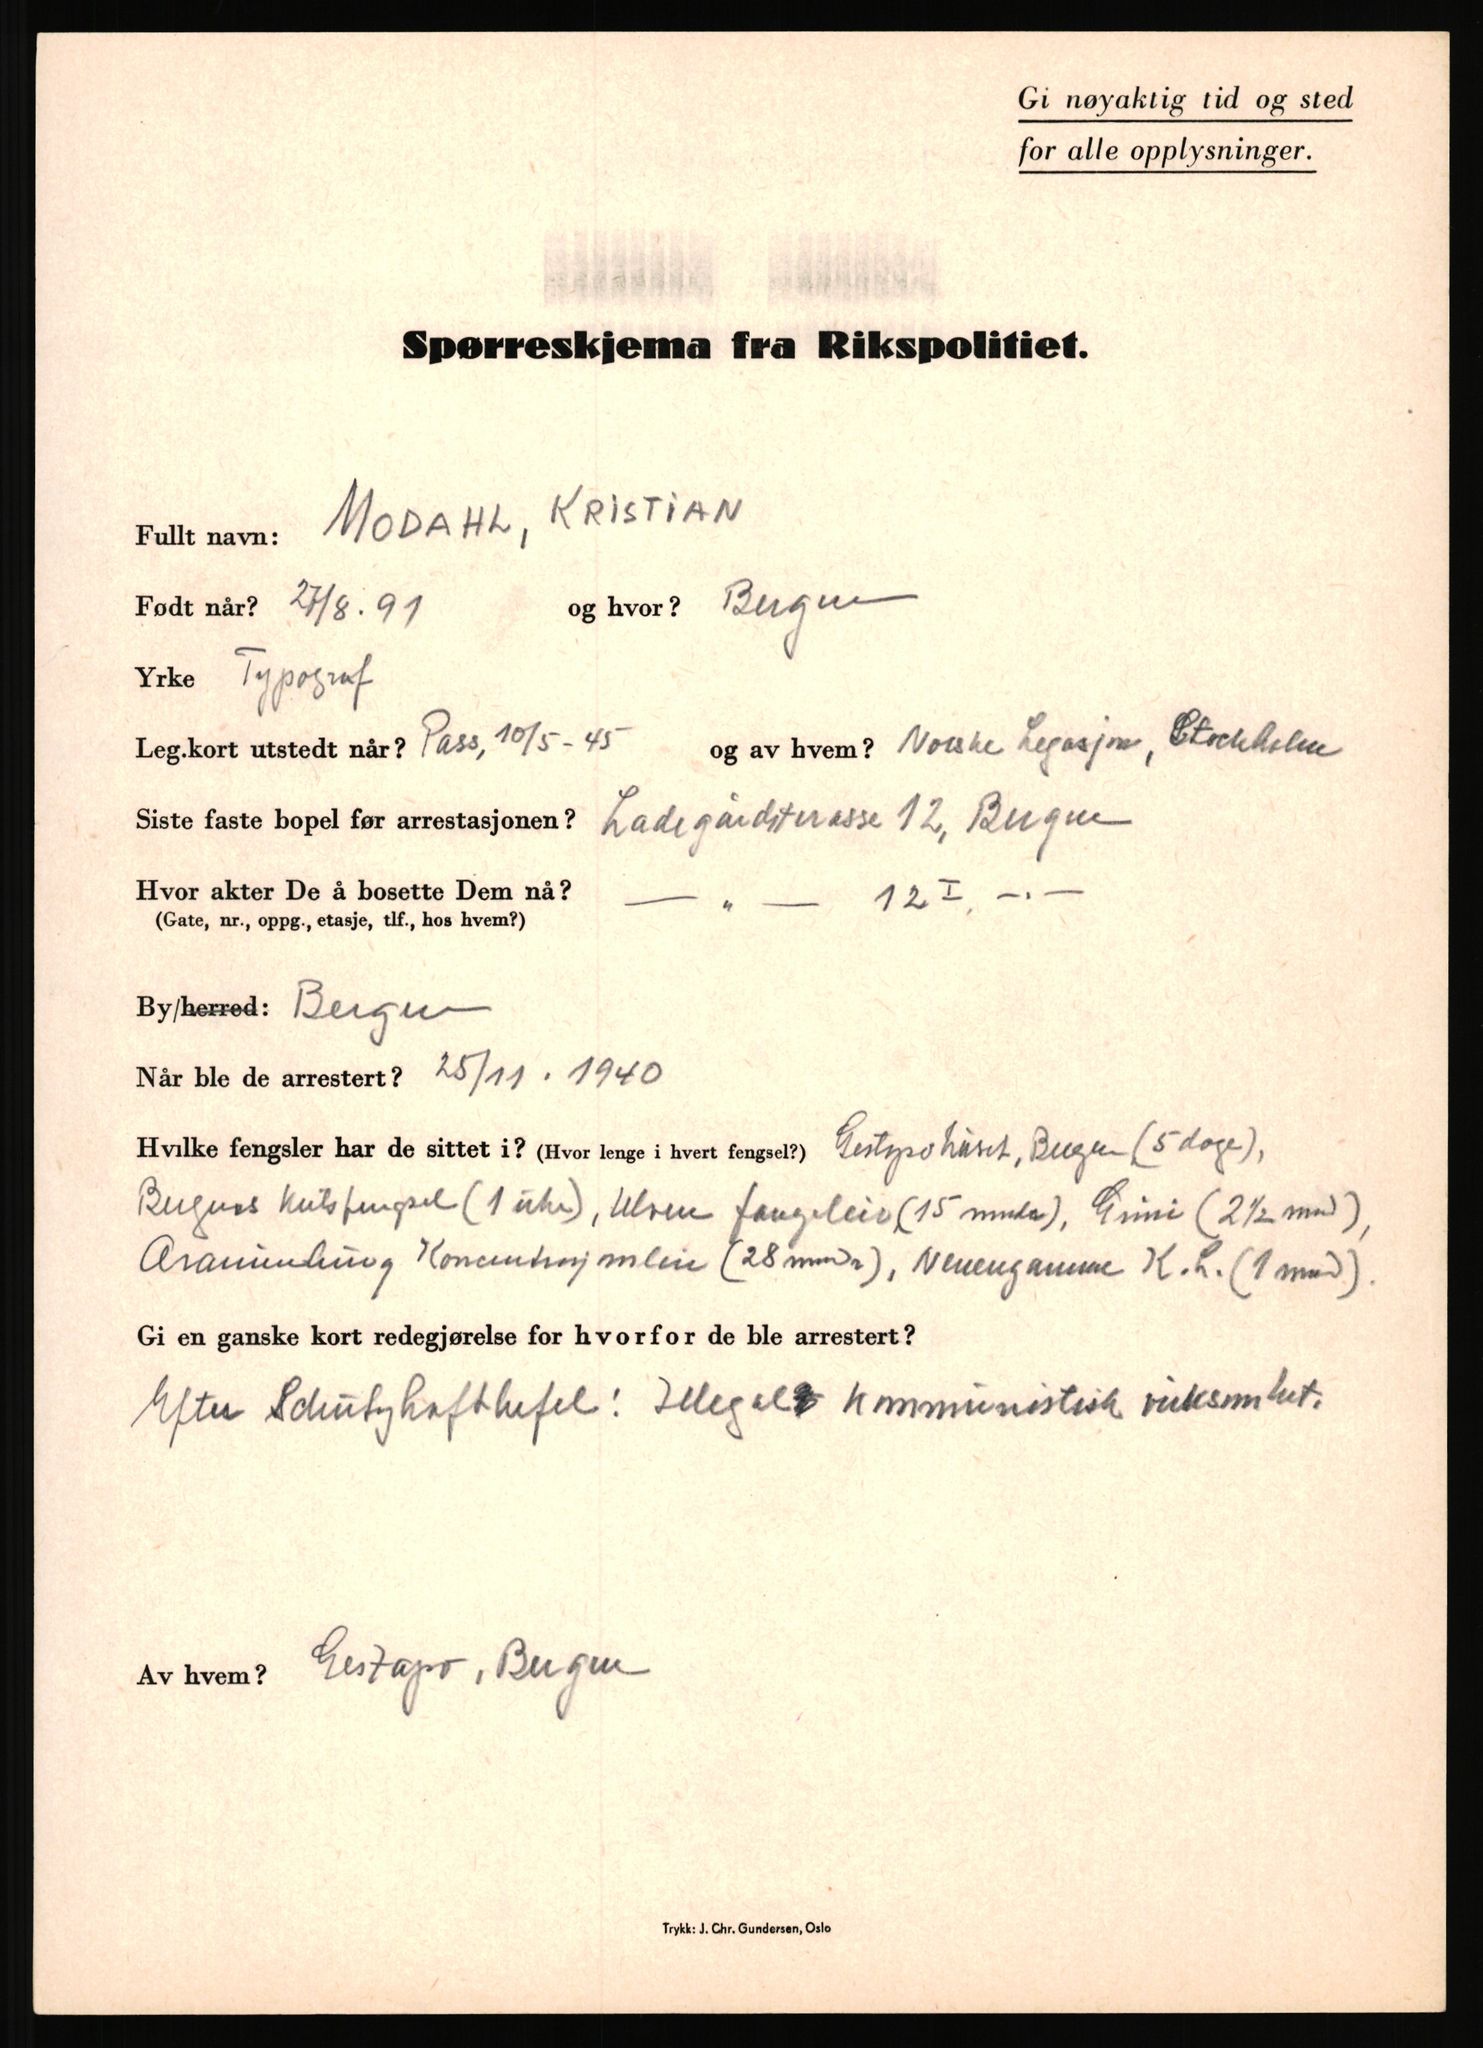 Gi nøyaktig tid og sted
for alle opplysninger.
Spørreskjema fra Rikspolitiet.
Fullt navn: MODAHL, KRISTIAN
Født når? 27/8.91 og hvor? Bergen
Yrke Typograf
Leg.kort utstedt når? Pass, 10/5-45 og av hvem? Norske Legasjon, Stockholm
Siste faste bopel før arrestasjonen? Ladegårdsterasse 12, Bergen
Hvor akter De å bosette Dem nå? — „ — 12 I, -.-
(Gate, nr., oppg., etasje, tlf., hos hvem?)
By/herred: Bergen
Når ble de arrestert? 25/11.1940
Hvilke fengsler har de sittet i? (Hvor lenge i hvert fengsel?) Gestapohuset, Bergen (5 dage),
Bergens kretsfengsel (1 uke), Ulven fangeleir (15 mndr), Grini (2½ mnd),
Oranienburg Koncentrasjonsleir (28 mndr), Neuengamme K.L. (1 mnd).
Gi en ganske kort redegjørelse for hvorfor de ble arrestert?
Efter Schutzhaftbefel: Illegal kommunistisk virksomhet.
Av hvem? Gestapo, Bergen
Trykk: J. Chr. Gundersen, Oslo